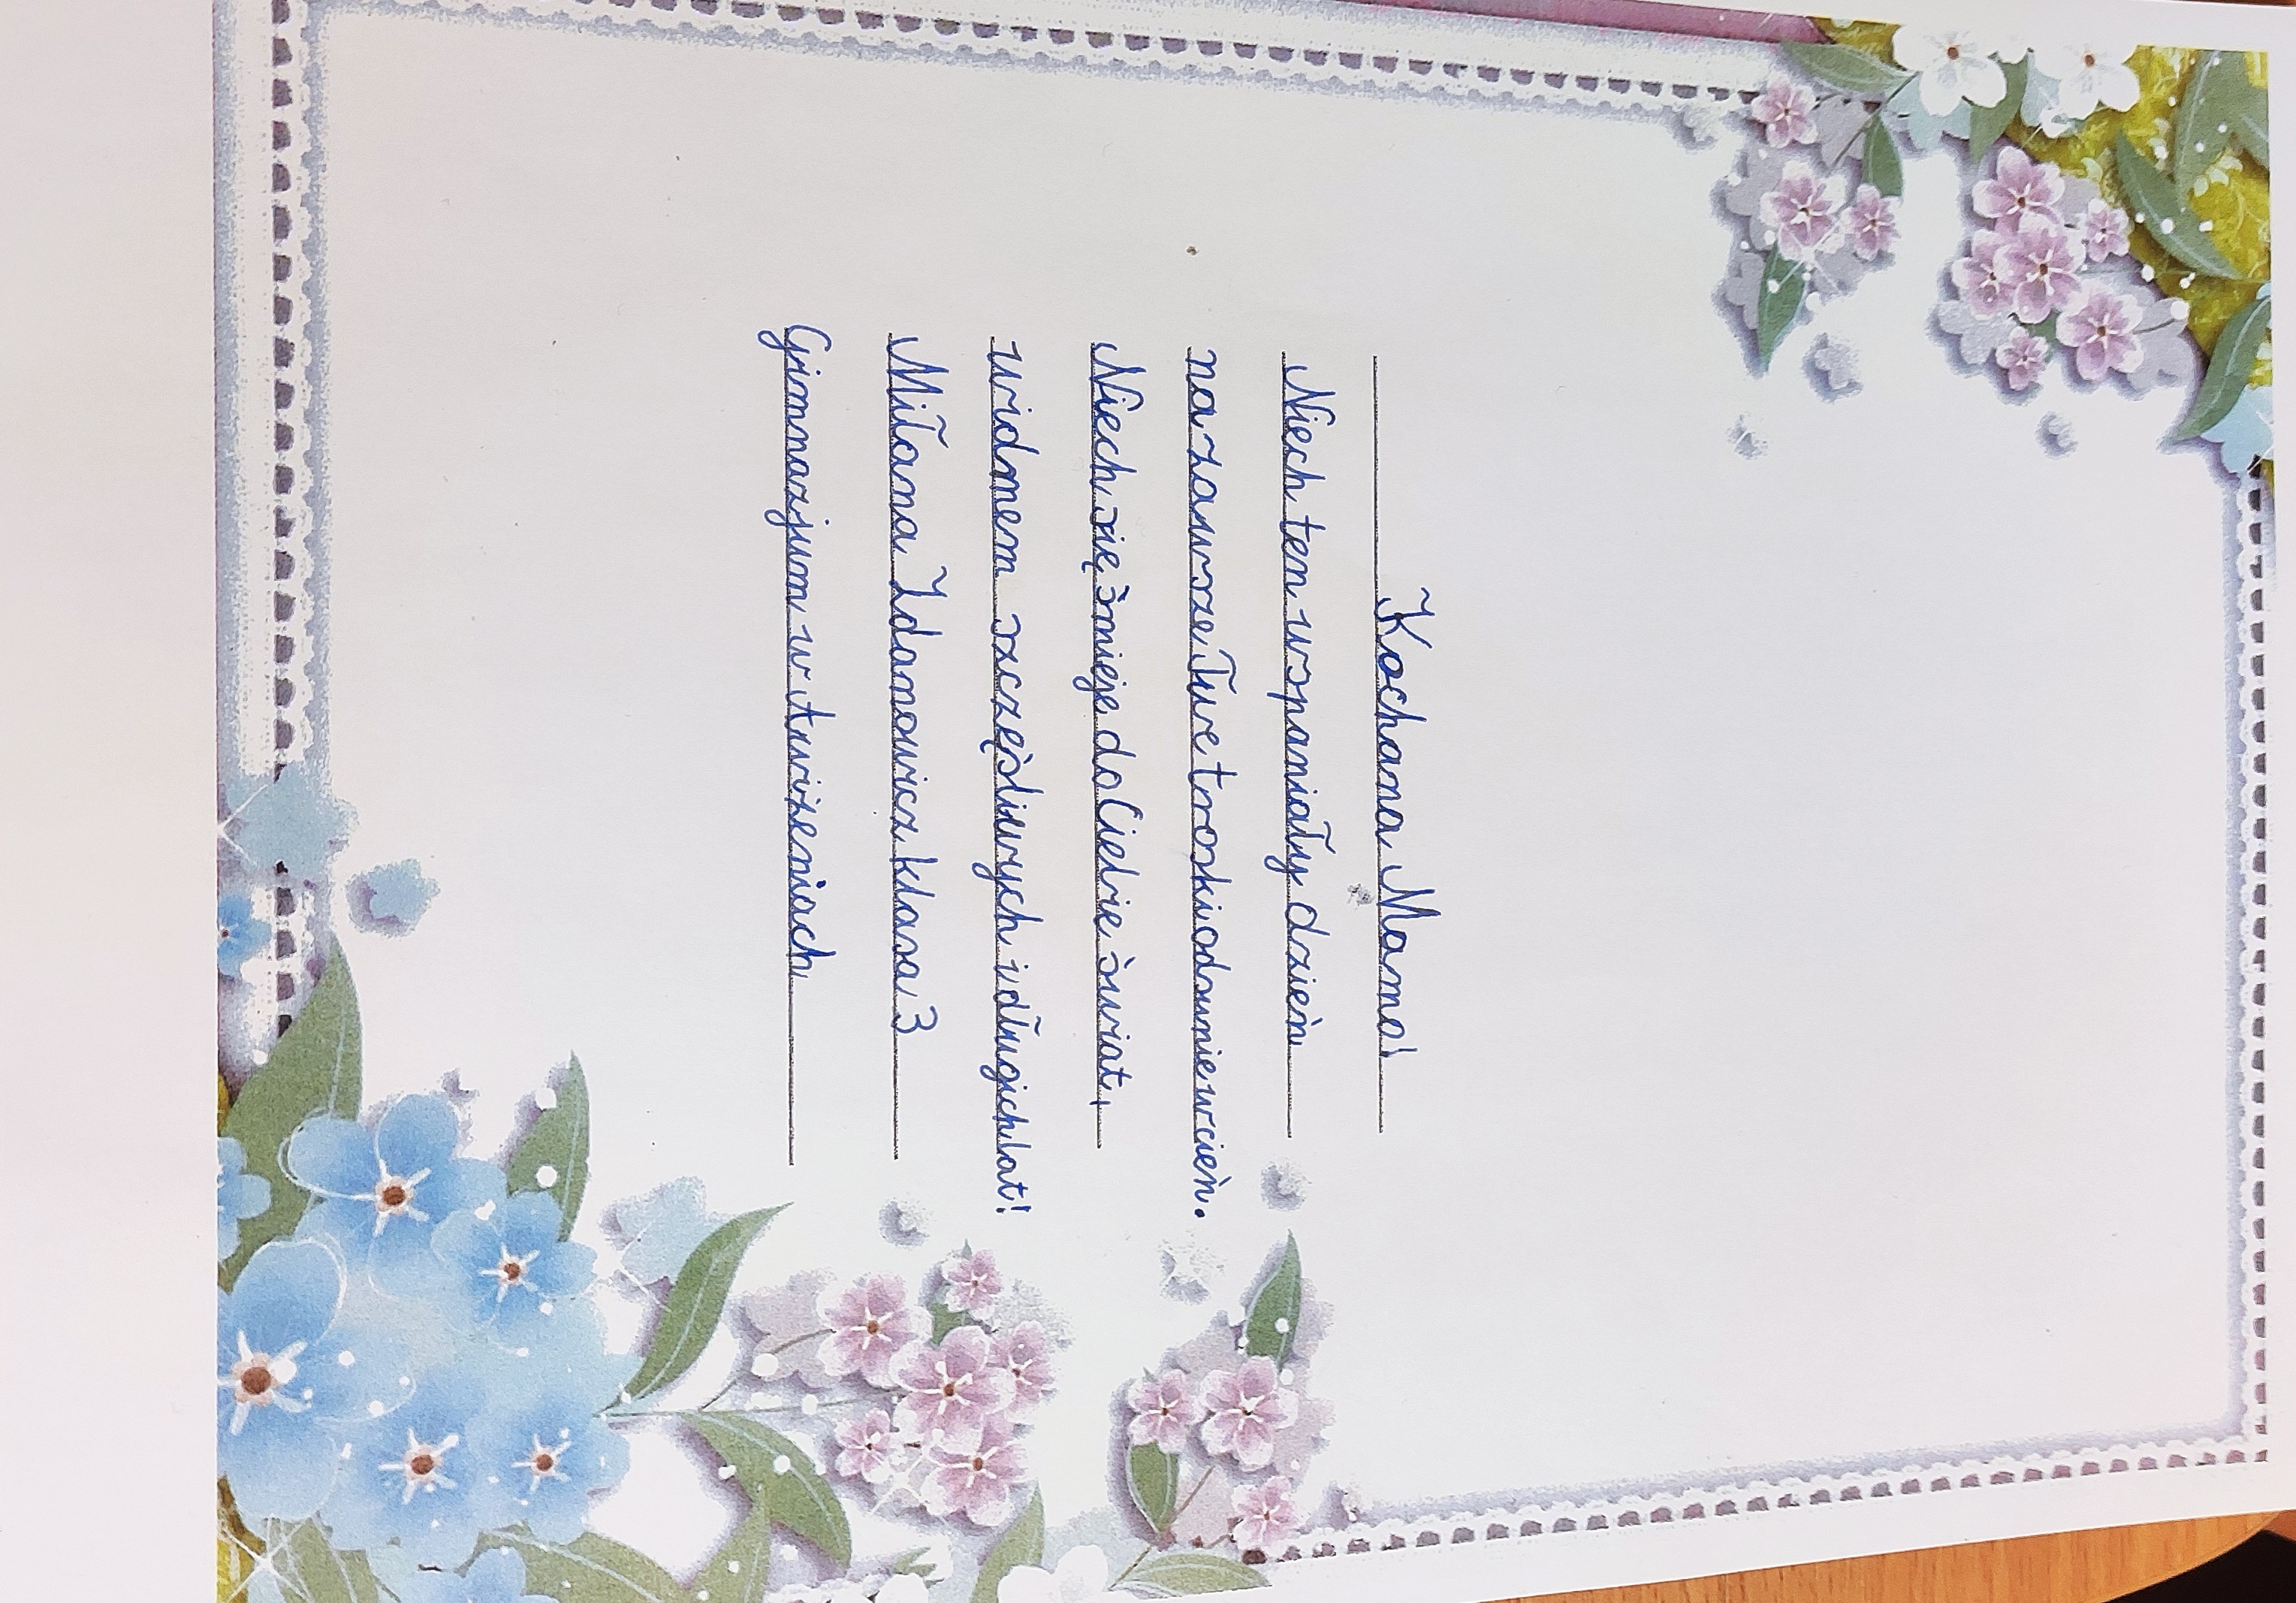 Kochana Mamo!
Niech ten wspaniały dzień
na zawsze Twe troski odsunie w cień.
Niech się śmieje do Ciebie świat,
widmem szczęśliwych i długich lat!
Miłana Zdanowicz klasa 3
Gimnazjum w Awiżeniach